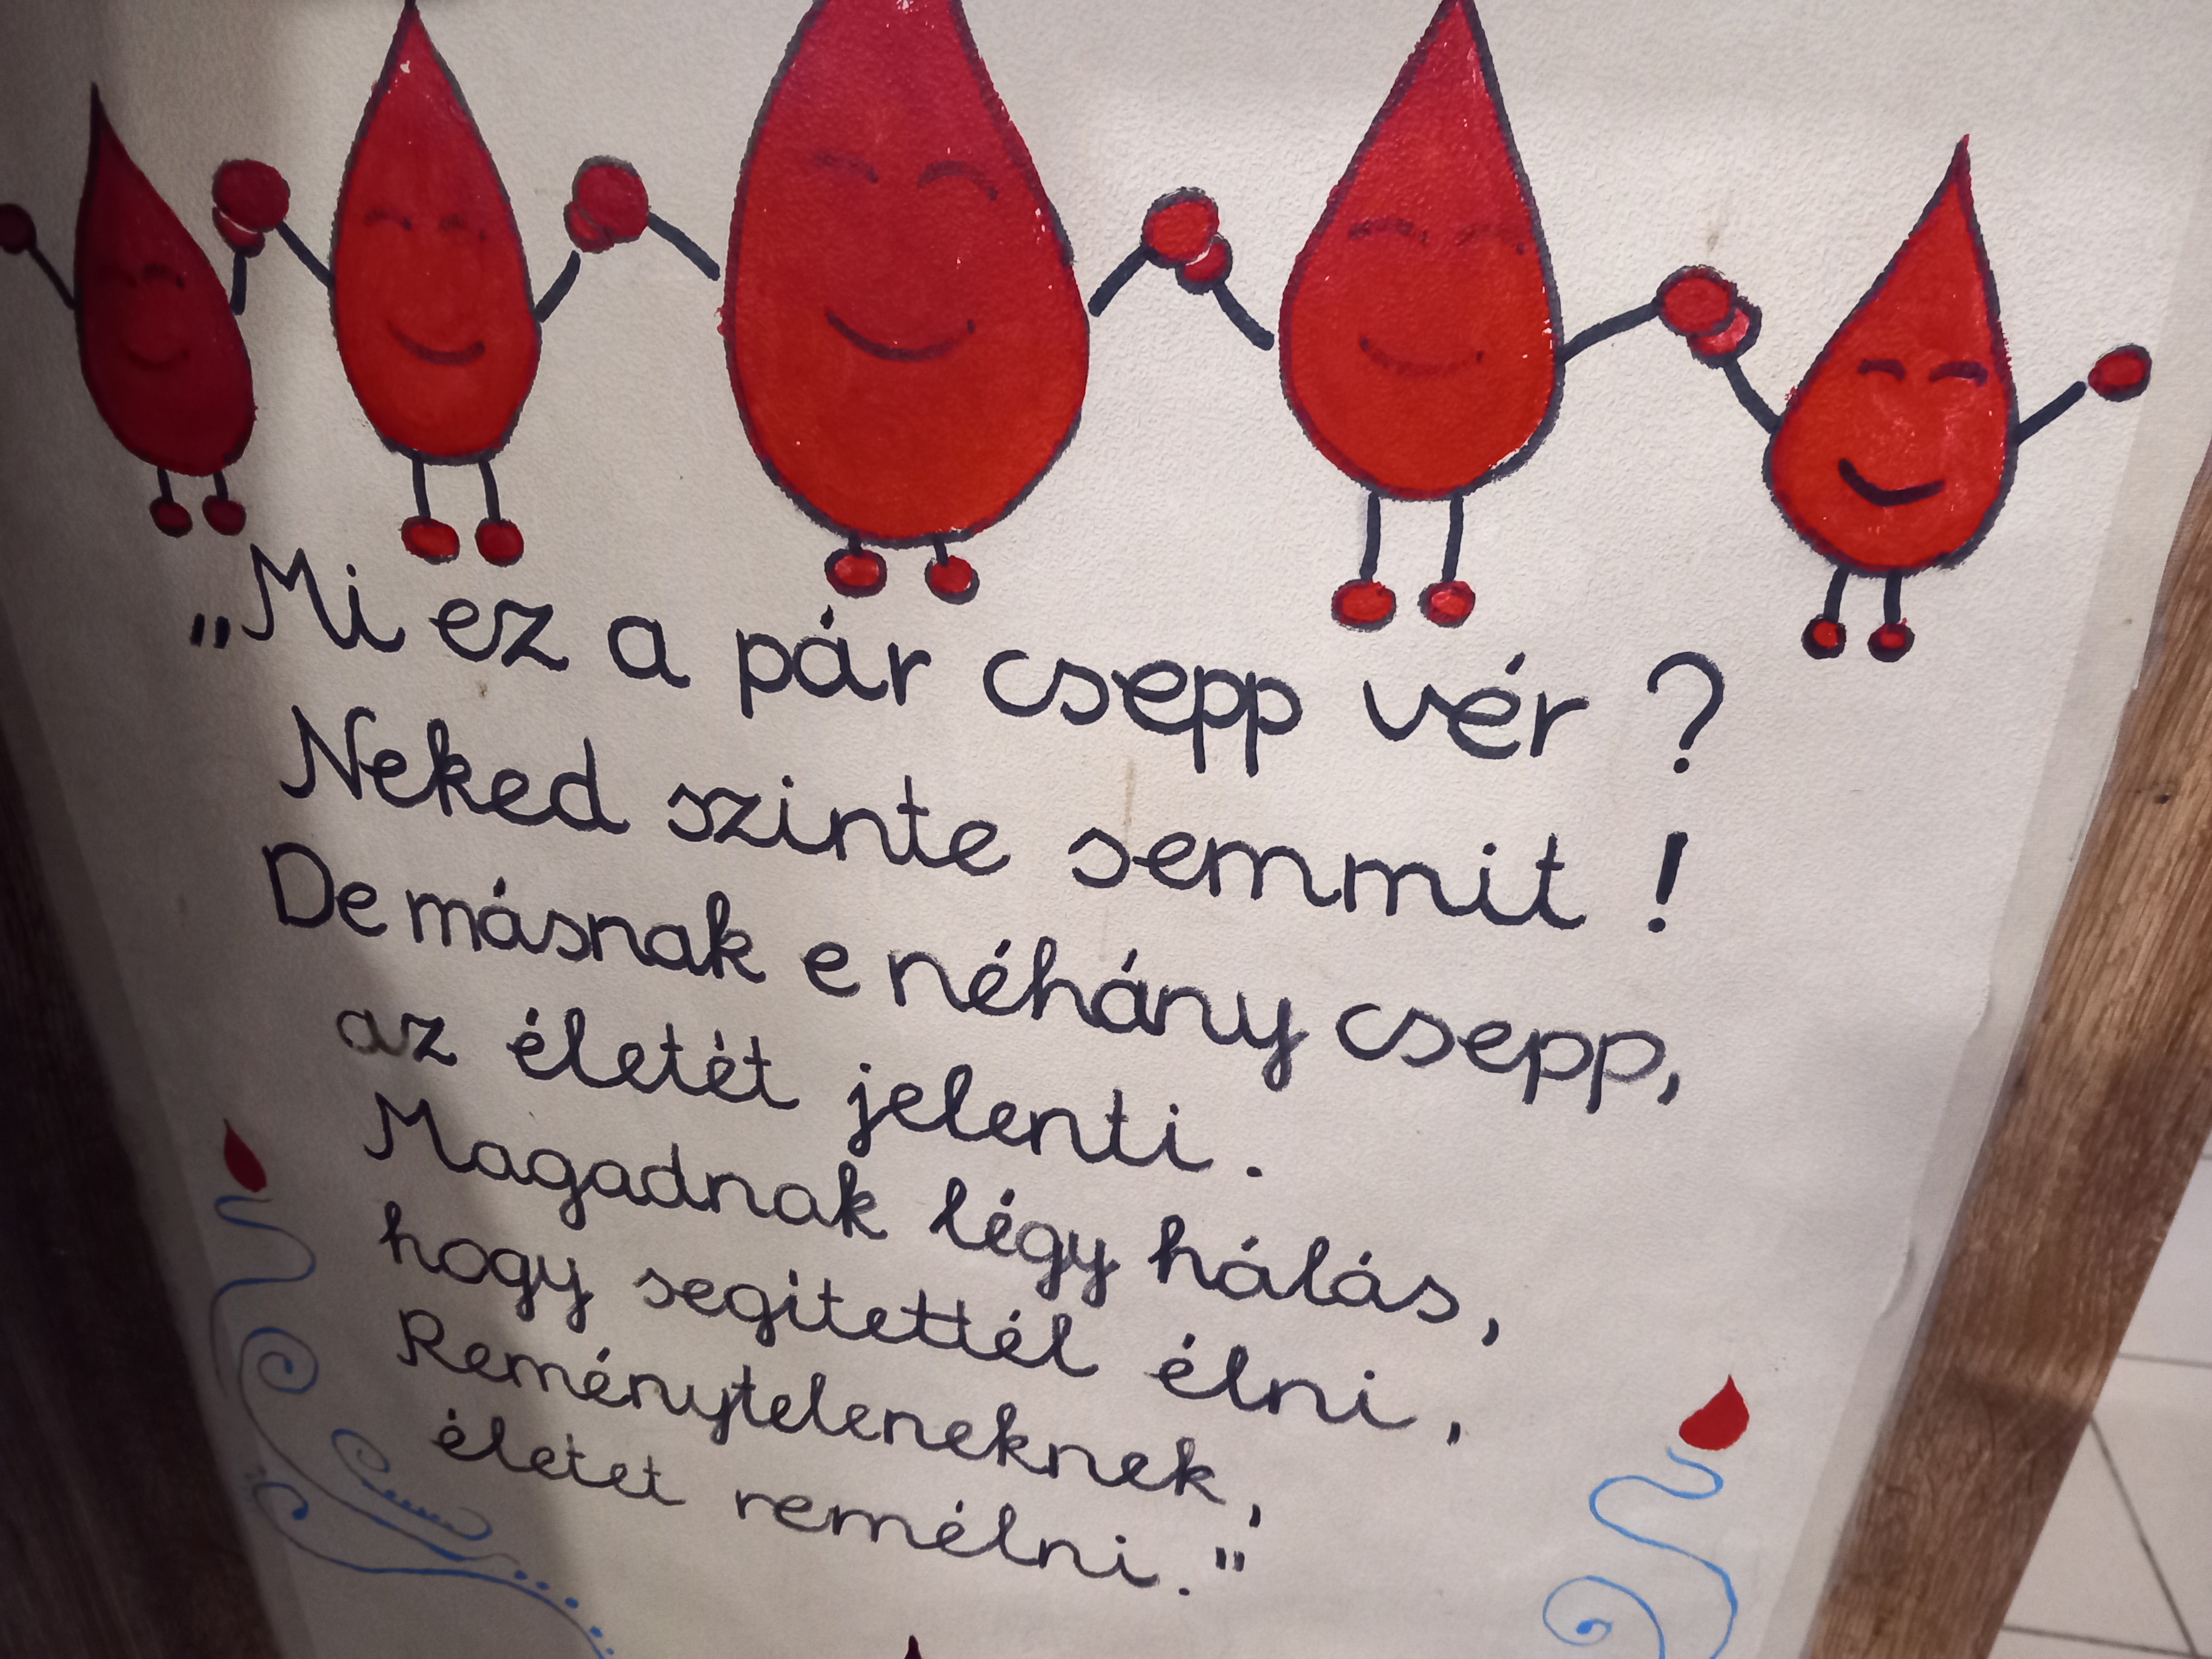 „Mi ez a pár csepp vér ?
Neked szinte semmit !
De másnak e néhány csepp,
az életét jelenti.
Magadnak légy hálás,
hogy segitettél élni,
Reményteleneknek,
életet remélni."